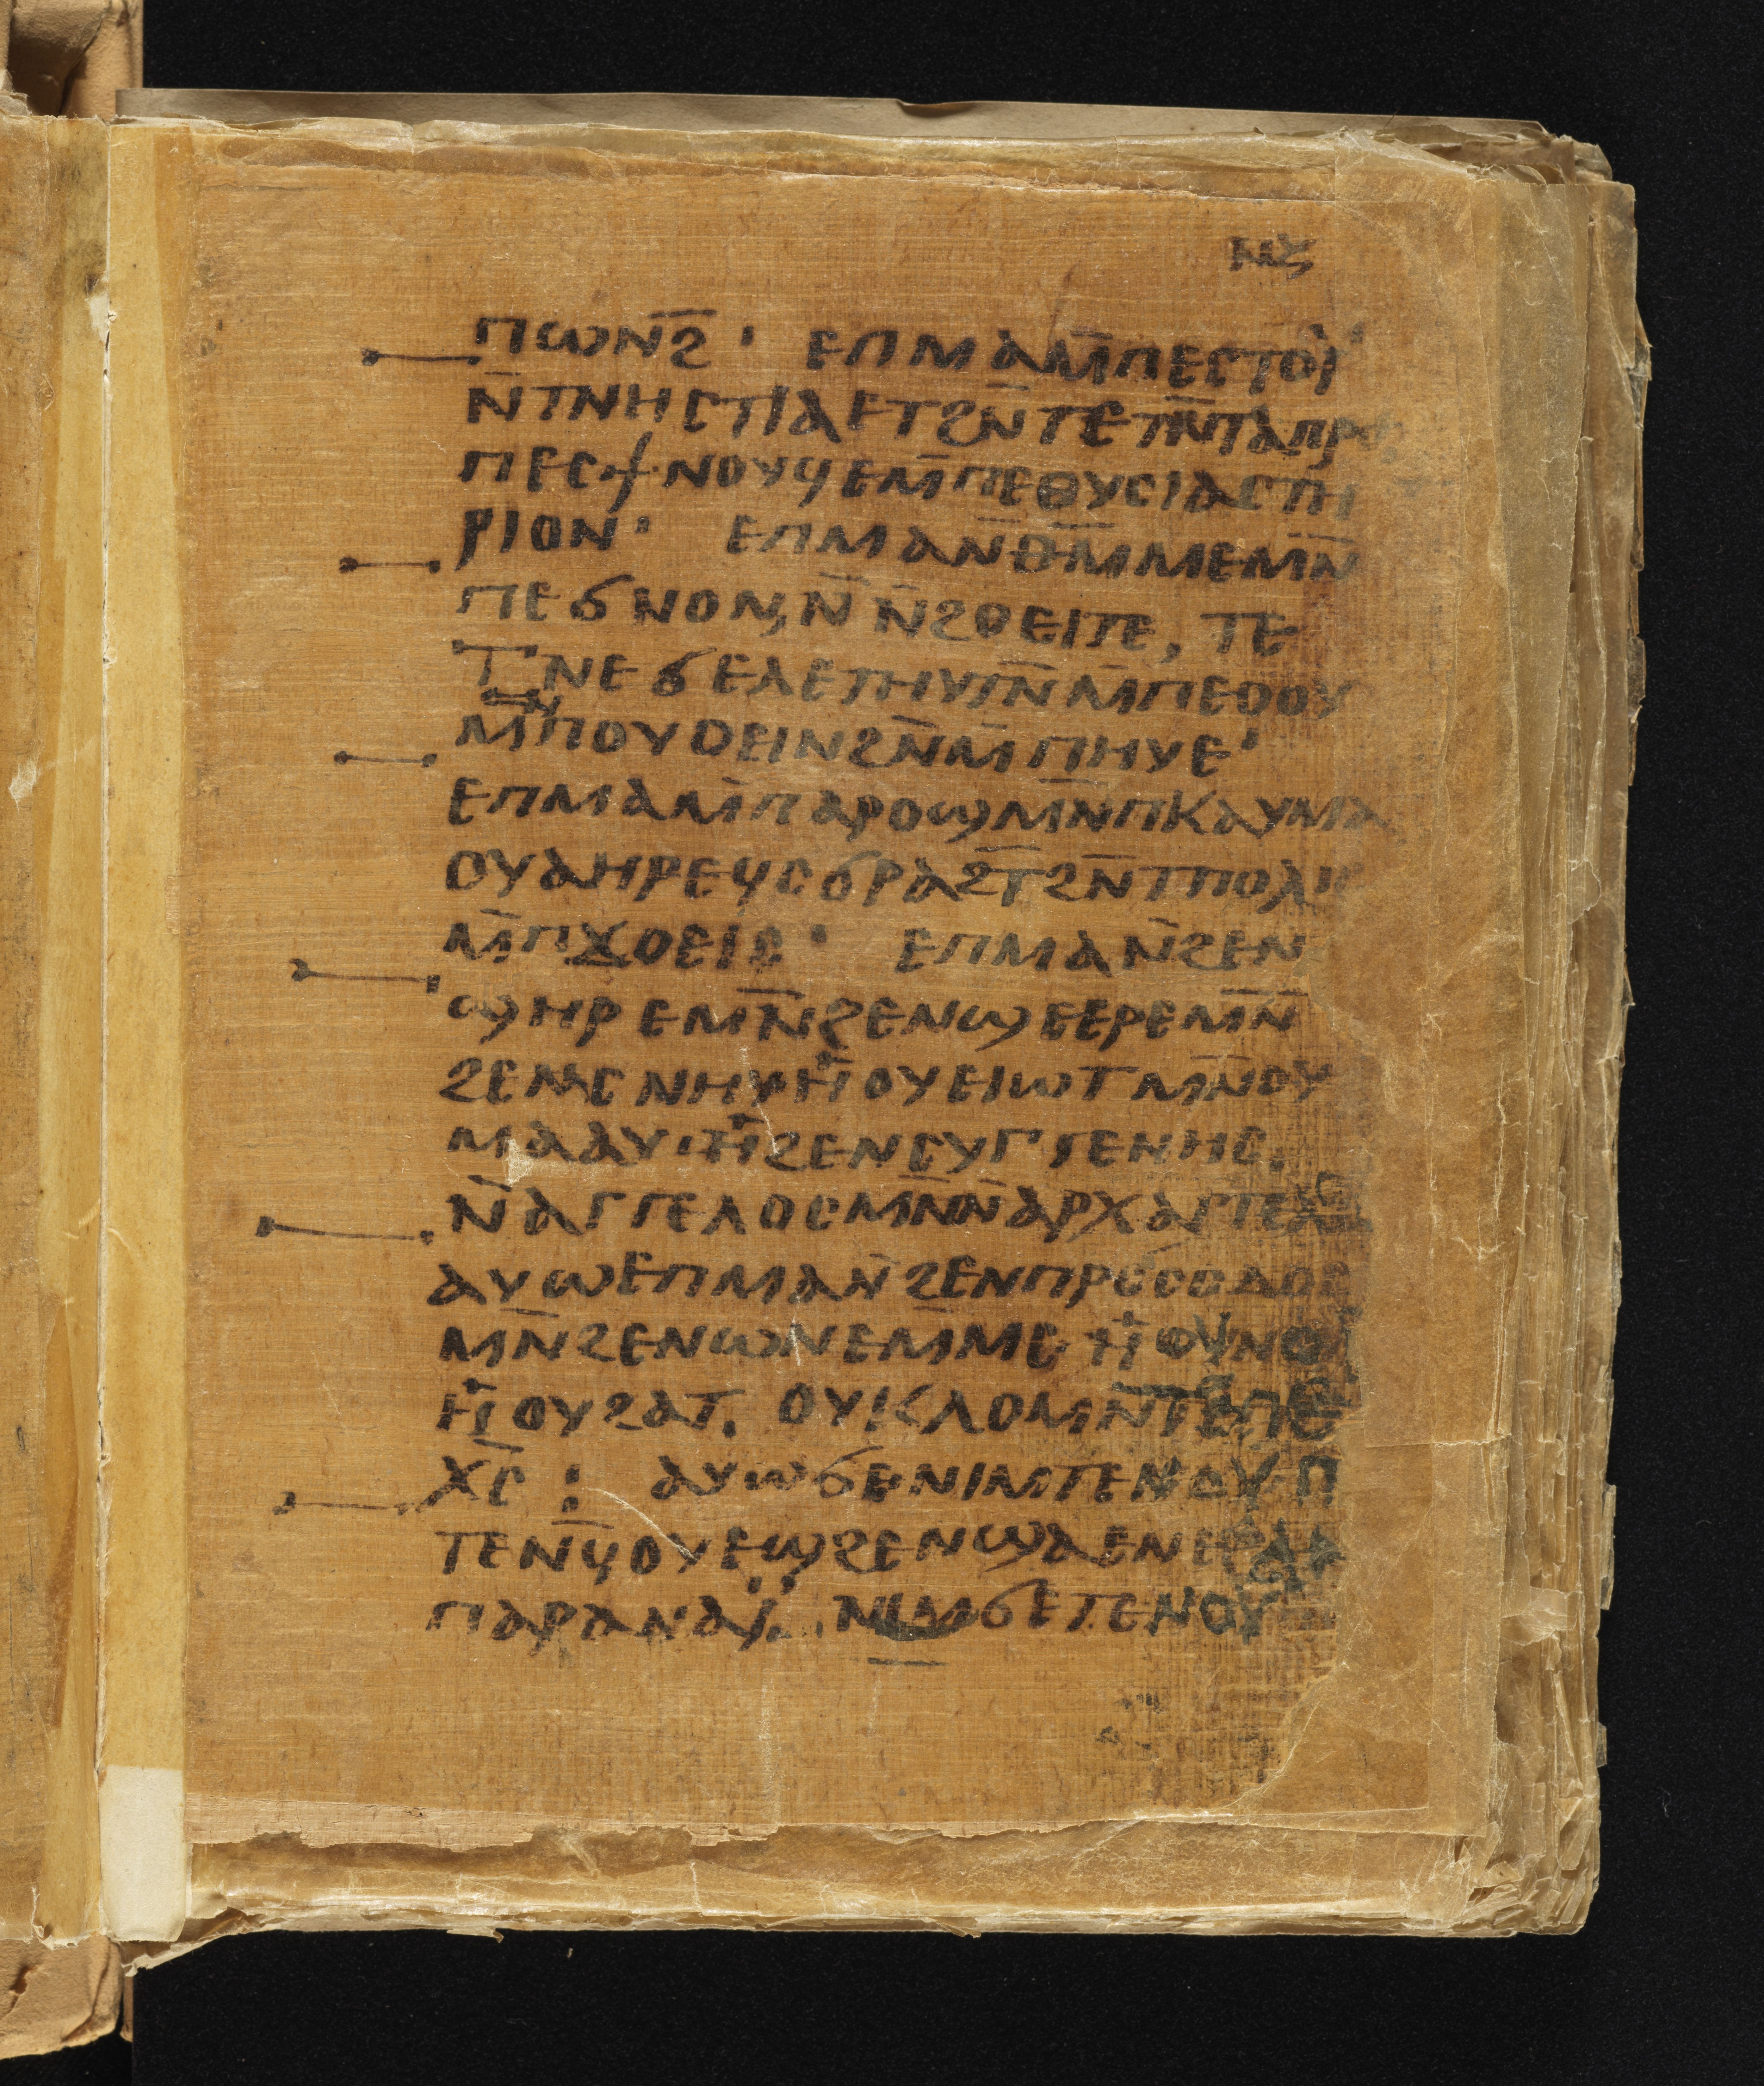 ⲛⲍ
ⲡⲱⲛϩ̄ · ⲉⲡⲙⲁⲙ̄ⲡⲉⲥⲧⲟⲓ̈
ⲛ̄ⲧⲛⲏⲥⲧⲓⲁⲉⲧϩⲛ̄ⲧⲉⲧⲛ̄ⲧⲁⲡⲣⲟ
ⲡⲉⲥϯⲛⲟⲩϥⲉⲙ̄ⲡⲉⲑⲩⲥⲓⲁⲥⲧⲏ
ⲣⲓⲟⲛ · ⲉⲡⲙⲁⲛ̄ⲑⲙ̄ⲙⲉⲙⲛ̄
ⲡⲉϭⲛⲟⲛ,ⲛ̄ⲛ̄ϩⲟⲉⲓⲧⲉ, ⲧⲉ
ⲧⲛⲉϭⲉⲗⲉⲧⲏⲩⲧⲛ̄ⲙ̄ⲡⲉⲟⲟⲩ
ⲙⲛ̄ⲡⲟⲩⲟⲉⲓⲛϩⲛ̄ⲙ̄ⲡⲏⲩⲉ ·
ⲉⲡⲙⲁⲙ̄ⲡⲁⲣⲟϣⲙⲛ̄ⲡⲕⲁⲩⲙⲁ
ⲟⲩⲁⲏⲣⲉϥⲥϭⲣⲁϩⲧ̄ϩⲛ̄ⲧⲡⲟⲗⲓⲥ
ⲙ̄ⲡϫⲟⲉⲓⲥ · ⲉⲡⲙⲁⲛ̄ϩⲉⲛ
ϣⲏⲣⲉⲙⲛ̄ϩⲉⲛϣⲉⲉⲣⲉⲙⲛ̄
ϩⲉⲛⲥⲛⲏⲩⲏ̇ⲟⲩⲉⲓⲱⲧⲙⲛ̄ⲟⲩ
ⲙⲁⲁⲩ·ⲏ̇ϩⲉⲛⲥⲩⲅⲅⲉⲛⲏⲥ.
ⲛ̄ⲁⲅⲅⲉⲗⲟⲥⲙⲛ̄ⲛ̄ⲁⲣⲭⲁⲅⲅⲉⲗⲟⲥ
ⲁⲩⲱⲉⲡⲙⲁⲛ̄ϩⲉⲛⲡⲣⲟⲥⲟⲇⲟⲥ
ⲙⲛ̄ϩⲉⲛⲱⲛⲉⲙ̄ⲙⲉ·ⲏ̇ⲟⲩⲛⲟⲩⲃ
ⲏ̇ⲟⲩϩⲁⲧ. ⲟⲩⲕⲗⲟⲙⲛ̄ⲧⲉⲡⲉ
ⲭ̄ⲥ̄ : ⲁⲩⲱϭⲉⲛⲓⲙⲡⲉⲛⲟⲩⲡ
ⲧⲉⲛϥ̄ⲟⲩⲉϣϩⲉⲛϣⲁⲉⲛⲉϩ
ⲡⲁⲣⲁⲛⲁⲓ̈. ⲛⲓⲙϭⲉⲧⲉⲛⲟⲩ